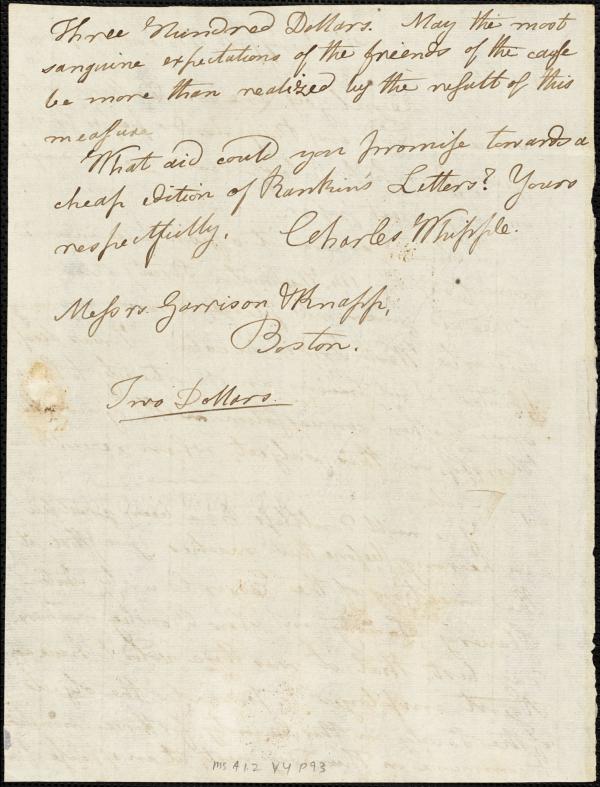 Three Hundred Dollars. May the most
sanguine expectations of the friends of the cause
be more than realized by the result of this
measure
What aid could you promise towards a
cheap edition of Rankin's Letters? Yours
respectfully, Charles Whipple.
Messrs. Garrison & Knapp,
Boston.
Two Dollars.
Ms A 1.2 V4 P93